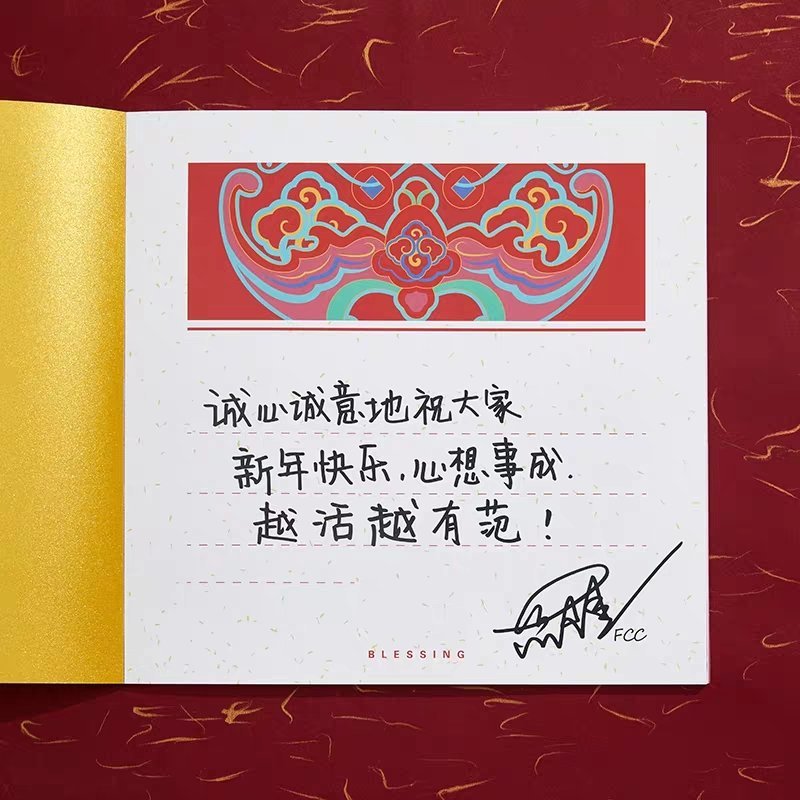 诚心诚意地祝大家
新年快乐,心想事成.
越活越有范!
FCC
BLESSING